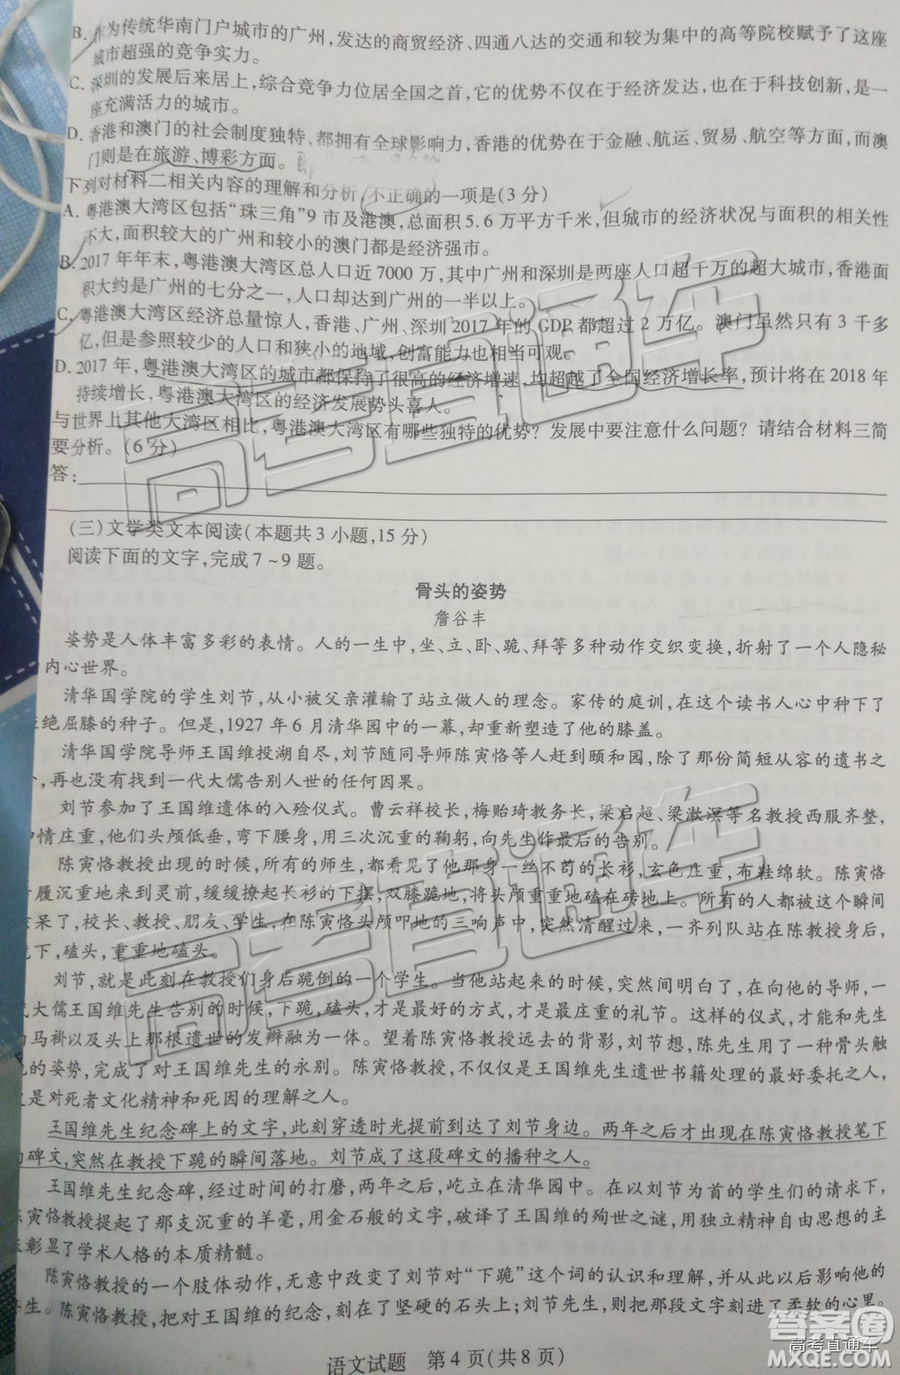 B. 作为传统华南门户城市的广州,发达的商贸经济、四通八达的交通和较为集中的高等院校赋予了这座
城市超强的竞争实力。
C. 深圳的发展后来居上,综合竞争力位居全国之首,它的优势不仅在于经济发达,也在于科技创新,是一
座充满活力的城市。
D. 香港和澳门的社会制度独特、都拥有全球影响力,香港的优势在于金融、航运、贸易、航空等方面,而澳
门则是在旅游、博彩方面。
下列对材料二相关内容的理解和分析,不正确的一项是(3 分)
A. 粤港澳大湾区包括“珠三角”9 市及港澳,总面积 5.6 万平方千米,但城市的经济状况与面积的相关性
不大,面积较大的广州和较小的澳门都是经济强市。
B. 2017 年年末,粤港澳大湾区总人口近 7000 万,其中广州和深圳是两座人口超千万的超大城市,香港面
积大约是广州的七分之一,人口却达到广州的一半以上。
C. 粤港澳大湾区经济总量惊人,香港、广州、深圳 2017 年的 GDP 都超过 2 万亿。澳门虽然只有 3 千多
亿,但是参照较少的人口和狭小的地域,创富能力也相当可观。
D. 2017 年,粤港澳大湾区的城市都保持了很高的经济增速,均超越了全国经济增长率,预计将在 2018 年
持续增长,粤港澳大湾区的经济发展势头喜人。
与世界上其他大湾区相比,粤港澳大湾区有哪些独特的优势?发展中要注意什么问题?请结合材料三简
要分析。(6 分)
答:
(三)文学类文本阅读(本题共 3 小题,15 分)
阅读下面的文字,完成 7~9 题。
骨头的姿势
詹谷丰
姿势是人体丰富多彩的表情。人的一生中,坐、立、卧、跪、拜等多种动作交织变换,折射了一个人隐秘
内心世界。
清华国学院的学生刘节,从小被父亲灌输了站立做人的理念。家传的庭训,在这个读书人心中种下了
绝屈膝的种子。但是,1927 年 6 月清华园中的一幕,却重新塑造了他的膝盖。
清华国学院导师王国维投湖自尽,刘节随同导师陈寅恪等人赶到颐和园,除了那份简短从容的遗书之
,再也没有找到一代大儒告别人世的任何因果。
刘节参加了王国维遗体的入殓仪式。曹云祥校长,梅贻琦教务长,梁启超、梁漱溟等名教授西服齐整,
情庄重,他们头颅低垂,弯下腰身,用三次沉重的鞠躬,向先生作最后的告别。
陈寅恪教授出现的时候,所有的师生,都看见了他那身一丝不苟的长衫,玄色庄重,布鞋绵软。陈寅恪
履沉重地来到灵前,缓缓撩起长衫的下摆,双膝跪地,将头颅重重地磕在砖地上。所有的人都被这个瞬间
呆了,校长、教授、朋友、学生,在陈寅恪头颅叩地的三响声中,突然清醒过来,一齐列队站在陈教授身后,
下,磕头,重重地磕头。
刘节,就是此刻在教授们身后跪倒的一个学生。当他站起来的时候,突然间明白了,在向他的导师,一
大儒王国维先生告别的时候,下跪,磕头,才是最好的方式,才是最庄重的礼节。这样的仪式,才能和先生
马褂以及头上那根遗世的发辫融为一体。望着陈寅恪教授远去的背影,刘节想,陈先生用了一种骨头触
的姿势,完成了对王国维先生的永别。陈寅恪教授,不仅仅是王国维先生遗世书籍处理的最好委托之人,
是对死者文化精神和死因的理解之人。
王国维先生纪念碑上的文字,此刻穿透时光提前到达了刘节身边。两年之后才出现在陈寅恪教授笔下
碑文,突然在教授下跪的瞬间落地。刘节成了这段碑文的播种之人。
王国维先生纪念碑,经过时间的打磨,两年之后,屹立在清华园中。在以刘节为首的学生们的请求下,
陈寅恪教授提起了那支沉重的羊毫,用金石般的文字,破译了王国维的殉世之谜,用独立精神自由思想的主
张彰显了学术人格的本质精髓。
陈寅恪教授的一个肢体动作,无意中改变了刘节对“下跪”这个词的认识和理解,并从此以后影响他的
终生。陈寅恪教授,把对王国维的纪念,刻在了坚硬的石头上;刘节先生,则把那段文字刻进了柔软的心里。
语文试题 第 4 页(共 8 页)
高考直通车
高考直通车
高考直通车
答案圈
MXQE.COM